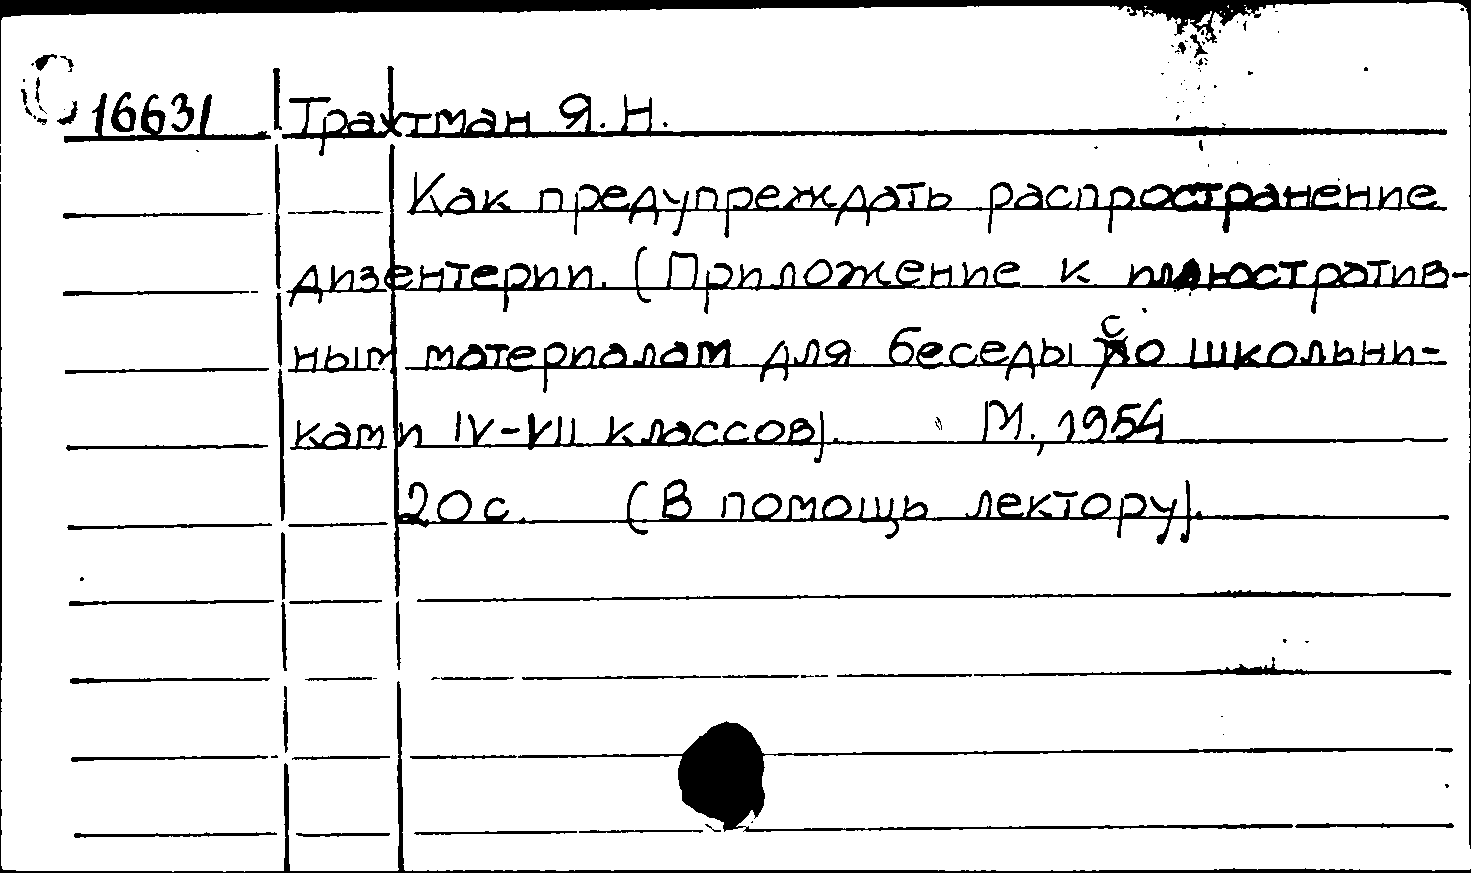 С 16631 Трахтман Я. Н.
Как предупреждать распространение
дизентерии. (Приложение к иллюстратив-
ным материалам для беседы со школьни-
ками IV-VII классов). М., 1954
20 с. (В помощь лектору).